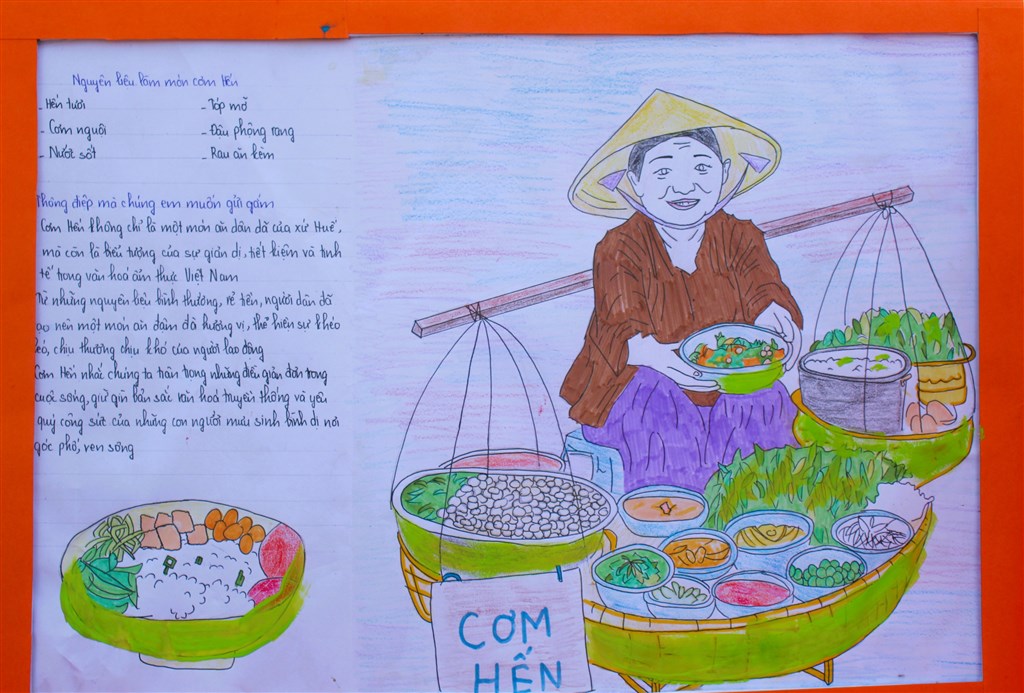 Nguyên liệu làm món cơm Hến
- Hến tươi
- Tóp mỡ
- Cơm nguội
- Đậu phộng rang
- Nước sốt
- Rau ăn kèm
Thông điệp mà chúng em muốn gửi gắm
Cơm Hến không chỉ là một món ăn dân dã của xứ Huế,
mà còn là biểu tượng của sự giản dị, tiết kiệm và tinh
tế trong văn hoá ẩm thực Việt Nam
Từ những nguyên liệu bình thường, rẻ tiền, người dân đã
tạo nên một món ăn đậm đà hương vị, thể hiện sự khéo
léo, chịu thương chịu khó của người lao động
Cơm Hến nhắc chúng ta trân trọng những điều giản đơn trong
cuộc sống, giữ gìn bản sắc văn hoá truyền thống và yêu
quý công sức của những con người mưu sinh bình dị nơi
góc phố, ven sông
CƠM
HẾN